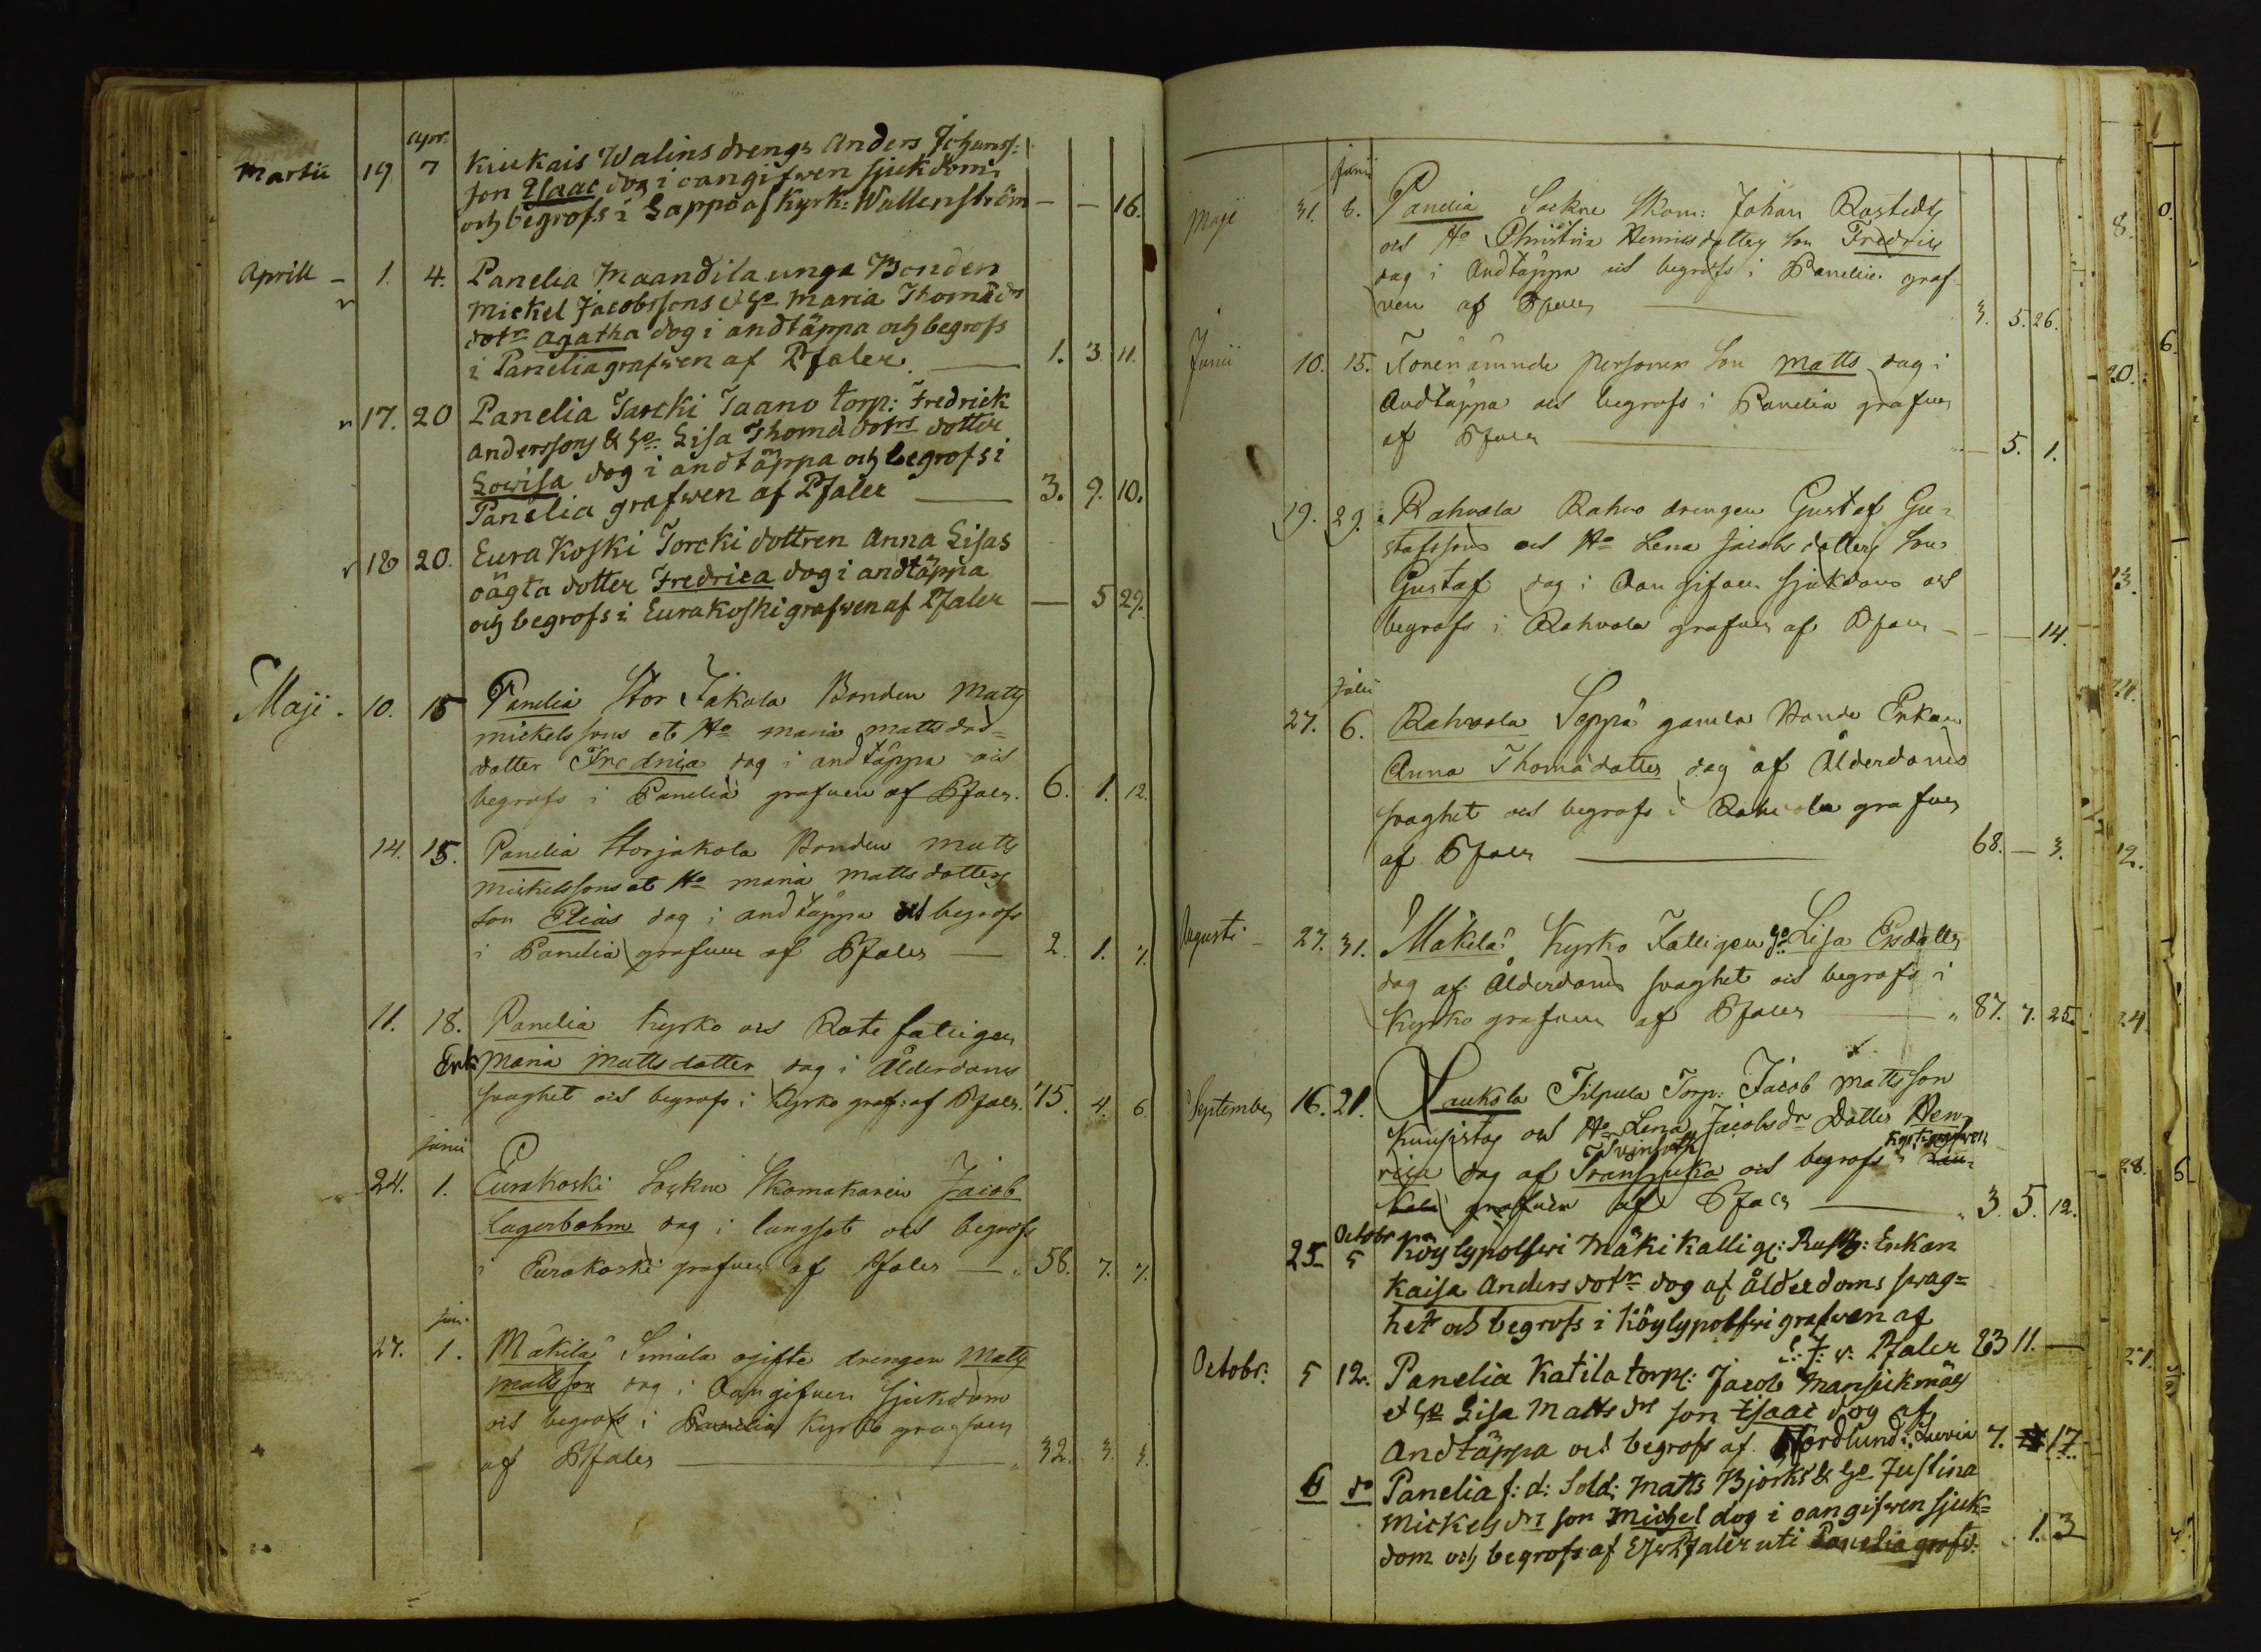 apr:
Martii 19 7 Kiukais Walins drengs Anders Johanss:
son Isaac dog i oangifwen sjukdom
och begrofs i Lappo af Kyrk: Wallenström — — 16.
Aprill — 1. 4. Panelia Maandila unga Bonden
Mickel Jacobssons et Ho Maria Thomædrs
dotr Agatha dog i andtäppa och begrofs
i Panelia grafwen af Pfaler. — 1. 3. 11.
17. 20 Panelia Tarcki Taano torp: Fredrick
Anderssons & Ho Lisa Thomædotrs dotter
Lowisa dog i andtäppa och begrofs i
Panelia grafwen af Pfaler — 3. 9. 10.
18 20. Eura Koski Torcki dottren Anna Lisas
oägta dotter Fredrica dog i andtäppa
och begrofs i Eurakoski grafwen af Pfaler — 5 29.
Maji. 10. 15 Panelia Stor Jakola Bonden Matts
Mickelssons et Ho Maria Mattsdrs
dotter Fredrica dog i andtäppa och
begrofs i Panelia grafwen af Pfaler. 6. 1. 12.
14. 15. Panelia Storjakola Bonden Matts
Mickelssons et Ho Maria Mattsdotters
son Elias dog i andtäppa och begrofs
i Panelia grafwen af Pfaler — 2. 1. 7.
11. 18. Panelia Kyrko och Rote fattigen
Enk: Maria Mattsdotter dog i Ålderdoms
svaghet och begrofs i Kyrko graf: af Pfaler. 75. 4. 6.
junii
24. 1. Eurakoski Sockne Skomakaren Jacob
Lagerbohm dog i lungsot och begrofs
i Eurakoski grafwen af Pfaler — 58. 7. 7.
jun.
27. 1. Mäkilä Simula ogifte drengen Matts
Mattsson dog i Oangifven sjukdom
och begrofs i Panelia Kyrko grafwen
af Pfaler — 32. 3. 3.
junii
Maji 31. 8. Panelia Sockne Skom: Johan Rosteds
och Ho Christina Henricsdotters son Fredric
dog i Andtäppa och begrofs i Panelia graf
ven af Pfaler — 3. 5. 26.
Junii 10. 15. Förenämnde personers son Matts dog i
Andtäppa och begrofs i Panelia grafven
af Pfaler — 5. 1.
19. 29. Rahvola Rahvo drengen Gustaf Gu-
stafssons och Ho Lena Jacobsdotters son
Gustaf dog i Oangifven sjukdom och
begrofs i Rahvola grafven af Pfaler — — 14.
Julii
27. 6. Rahvola Seppä gamla Bonde Enkan
Anna Thomædotter dog af Ålderdoms
svaghet och begrofs i Rahvola grafven
af Pfaler — 68. — 3.
Augusti — 27. 31. Mäkilä Kyrko Fattigen Ho Lisa Ersdotter
dog af Ålderdoms svaghet och begrofs i
Kyrko grafven af Pfaler — 87. 7. 25.
September 16. 21. Laukola Filpula Torp: Jacob Mattsson
Kuusistos och Ho Lena Jacobsdr Dotter Hen
rica dog af Transjuka och begrofs i
grafven af Pfaler — 3. 5. 12.
Octobr
25 5 Köylypolfwi Mäkikalli gl: Rusth: Enkan
Kaisa Andersdotr dog af ålderdoms swag=
het och begrofs i Köylypolfwi grafwen af
Pfaler 83 11. —
Octobr: 5 12. Panelia Katila torp: Jacob Mansickmäs
et Ho Lisa Mattsdrs son Isaac dog af
Andtäppa och begrofs af Nordlund i Luvia 7. 17
6 do Panelia f: d: Sold: Matts Björks & Ho Justina
Mickelsdrs son Michel dog i oangifwen sjuk=
dom och begrofs af Pfaler uti Panelia grafv: 1. 3